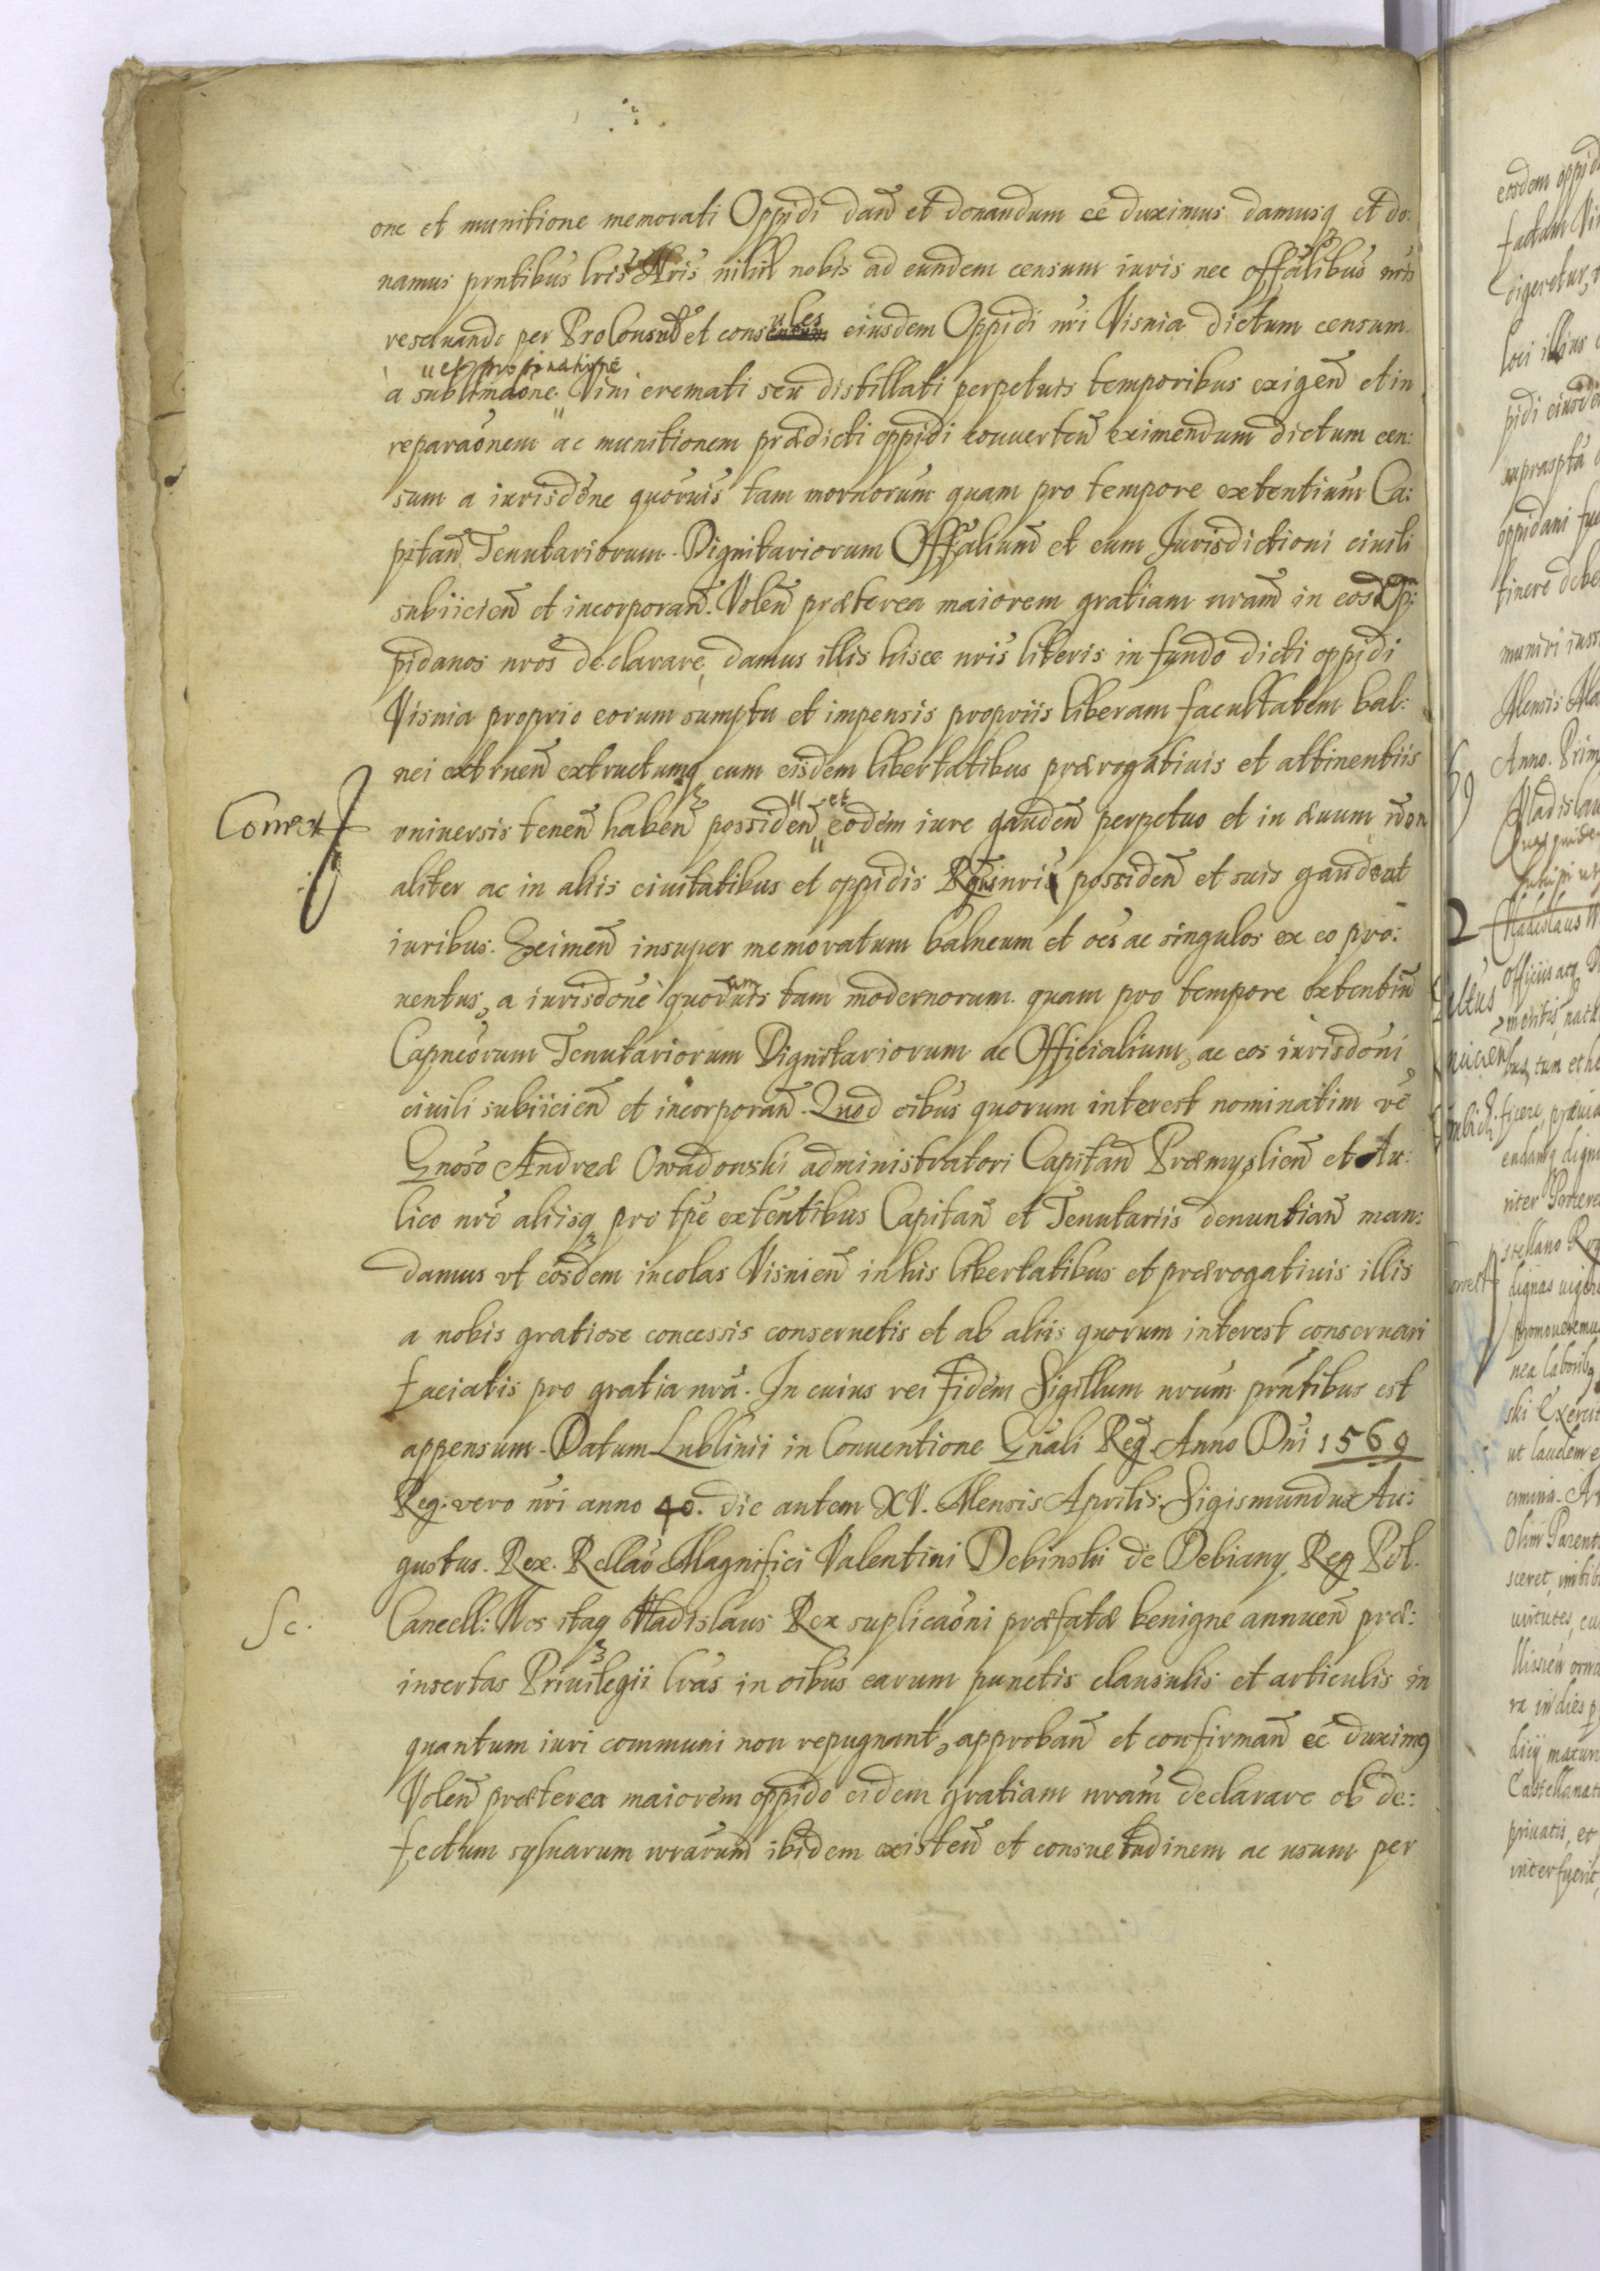 one et munitione memorati Oppidi dan̄ et donandum ee duximus damusq et do:
namus pnntibus lris nris nihil nobis ad eundem censum iuris nec offalibus nris
reseruando per ProConsul et consules eiusdem Oppidi nri Visnia dictum censum
et propinatione
a sublimaone Vini cremati seu distillati perpetuis temporibus exigen̄ et in
reparaonem ac munitionem prædicti oppidi conuerten̄ eximendum dictum cen:
sum a iurisdone quoruis tam mornorum quam pro tempore extentium Ca:
pitan̄ Tenutariorum Dignitariorum Offalium et eum Jurisdictioni ciuili
subiicien̄ et incorporan̄. Volen̄ præterea maiorem gratiam nram in eosd Op:
pidanos nros declarare, damus illis hisce nris literis in fundo dicti oppidi
Visnia proprio eorum sumptu et impensis propriis liberam facultatem bal:
nei extruen̄ extructumq cum eisdem libertatibus prærogatiuis et attinentiis
Correct
vniuersis tenen̄ haben̄ possiden̄ et eodem iure gauden̄ perpetuo et in æuum non
aliter ac in aliis ciuitatibus et oppidis Regni nris possiden̄ et suis gaudent
iuribus. Eximen̄ insuper memoratum balneum et oes ac singulos ex eo pro:
uentus, a iurisdone quorumuis tam modernorum quam pro tempore extentium
Capneorum Tenutariorum Dignitariorum ac Officialium, ac eos iurisdoni
ciuili subiicien̄ et incorporan̄. Quod oibus quorum interest nominatim ve
Gnoso Andreæ Owadowski administratori Capitan̄ Præmyslien̄ et Au:
lico nro aliisq pro tpe extentibus Capitan̄ et Tenutariis denuntian̄ man:
damus vt eosdem incolas Visnien̄ in his libertatibus et prærogatiuis illis
a nobis gratiose concessis conseruetis et ab aliis quorum interest conseruari
faciatis pro gratia nra. In cuius rei fidem Sigillum nrum pnntibus est
appensum. Datum Lublinii in Conuentione Gnali Reg. Anno Dni 1569
Reg. vero nri anno 40. die autem XV. Mensis Aprilis. Sigismundus Au:
gustus. Rex. Rellao Magnifici Valentini Debinski de Debiany Reg Pol.
Sc.
Cancell: Nos itaq Vladislaus Rex suplicaoni præfatæ benigne annuen̄ præ:
insertas Priuilegii lras in oibus earum punctis clausulis et articulis in
quantum iuri communi non repugnant, approban̄ et confirman̄ ee duximq
Volen̄ præterea maiorem oppido eidem gratiam nram declarare ob de:
fectum syluarum nrarum ibidem existen̄ et consuetudinem ac usum per